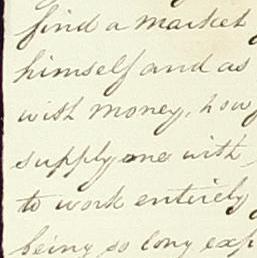 find a market
himself and as
with money, how
supply one with
to work entirely
being so long exp